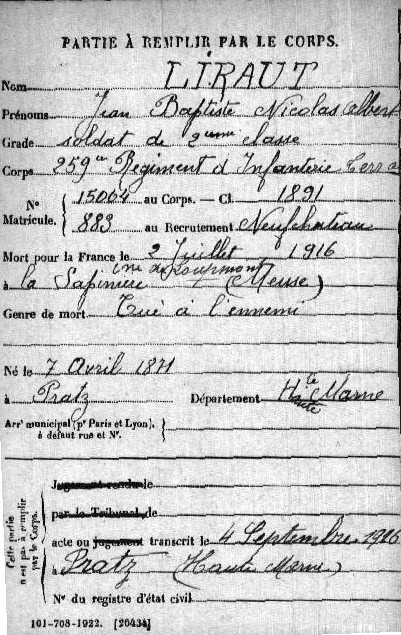 PARTIE À REMPLIR PAR LE CORPS.
Nom LIRAUT
Prénoms Jean Baptiste Nicolas Albert
Grade soldat de 2ème classe
Corps 259ème Régiment d'Infanterie Terr
Nº Matricule. { 15064 au Corps. — Cl. 1891
883 au Recrutement Neufchateau
Mort pour la France le 2 Juillet 1916
à la Sapinière (Meuse)
Genre de mort Tué à l'ennemi
Né le 7 Avril 1871
à Pratz Département Hte Marne
Haute
Arrt municipal (pr Paris et Lyon),
à défaut rue et Nº.
Cette partie n'est pas à remplir par le Corps.
Jugement rendu le
par le Tribunal de
acte ou jugement transcrit le 4 Septembre 1916
à Pratz (Haute Marne)
Nº du registre d'état civil
101-708-1922. [26434]